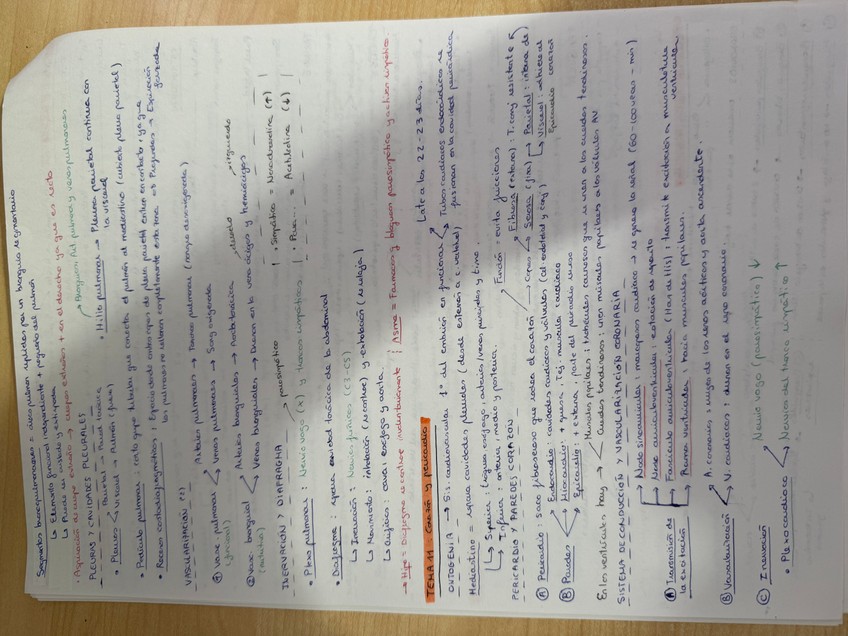 Segmentos broncopulmonares = áreas pulmonares aireadas por un bronquio segmentario
↳ Elemento funcional independiente + pequeño del pulmón
↳ Puede ser
• Aspiración de cuerpo extraño → cuerpos extraños + en el derecho ya que es recto
→ Bronquios, Art. pulmonar y venas pulmonares
PLEURAS Y CAVIDADES PLEURALES
• Hilio pulmonar → Pleura parietal continua con la visceral
• Pleuras
Parietal → Pared torácica
Visceral → Pulmón (fuera)
• Pedículo pulmonar: corto grupo tubular que conecta el pulmón al mediastino (cubierto pleura parietal)
• Recesos costodiafragmáticos: Espacio donde ambas capas de pleura parietal entran en contacto, ya que los pulmones no rellenan completamente esta zona → Espiración forzada
VASCULARIZACIÓN (2)
① Vasc. pulmonar (funcional)
Arterias pulmonares → Tronco pulmonar (sangre desoxigenada)
Venas pulmonares → Sang oxigenada
② Vasc. bronquial (nutricia)
Arterias bronquiales → Aorta torácica
Venas bronquiales → Drenan en la vena ácigos y hemiácigos
derecho
izquierdo
INERVACIÓN Y DIAFRAGMA
parasimpático
• Simpático = Noradrenalina (↑)
• Para... = Acetilcolina (↓)
• Plexo pulmonar: Nervio vago (X) y troncos simpáticos
• Diafragma: separa cavidad torácica de la abdominal
↳ Inervación: Nervios frénicos (C3-C5)
↳ Movimiento: inhalación (se contrae) y exhalación (se relaja)
↳ Orificios: cava, esófago y aorta.
→ Hipo = Diafragma se contrae involuntariamente
Asma = Fármacos bloquean parasimpático y activan simpático
TEMA 11: Corazón y pericardio
ONTOGENIA → S. cardiovascular 1º del embrión en funcionar
Late a los 22-23 días.
Tubos cardiacos endocárdicos se fusionan en la cavidad pericárdica
Mediastino = separa cavidades pleurales (desde esternón a c. vertebral)
↳ Superior: tráquea, esófago, arterias/venas principales y timo.
↳ Inferior: anterior, medio y posterior.
PERICARDIO Y PAREDES CORAZÓN
Función: evita fricciones
Ⓐ Pericardio: Saco fibroseroso que rodea el corazón → Capas
Fibrosa (externa): T. conj. resistente
Serosa (fina) → Parietal: interna de
↳ Visceral: adherida al corazón
Epicardio
Ⓑ Paredes
Endocardio: cavidades cardiacas y válvulas (al endotelial y conj)
Miocardio: + gruesa, Tej. muscular cardiaco
Epicardio: + externa, parte del pericardio seroso
En los ventrículos hay →
Músculos papilares: trabéculas carnosas que se unen a las cuerdas tendinosas.
Cuerdas tendinosas: unen músculos papilares a las válvulas AV
SISTEMA DE CONDUCCIÓN Y VASCULARIZACIÓN CORONARIA
Ⓐ Transmisión de la excitación
Nodo sinoauricular: marcapasos cardiaco → se genera la señal (60-100 veces - min)
Nodo auriculoventricular: estación de
Fascículo auriculoventricular (Haz de His): transmite excitación a musculatura ventricular
Ramas ventriculares, hacia músculos papilares.
Ⓑ Vascularización
A. coronarias: surgen de los senos aórticos y aorta ascendente.
V. cardiacas: drenan en el seno coronario.
Ⓒ Inervación
• Plexo cardiaco
Nervio vago (parasimpático) ↓
Nervios del tronco simpático ↑